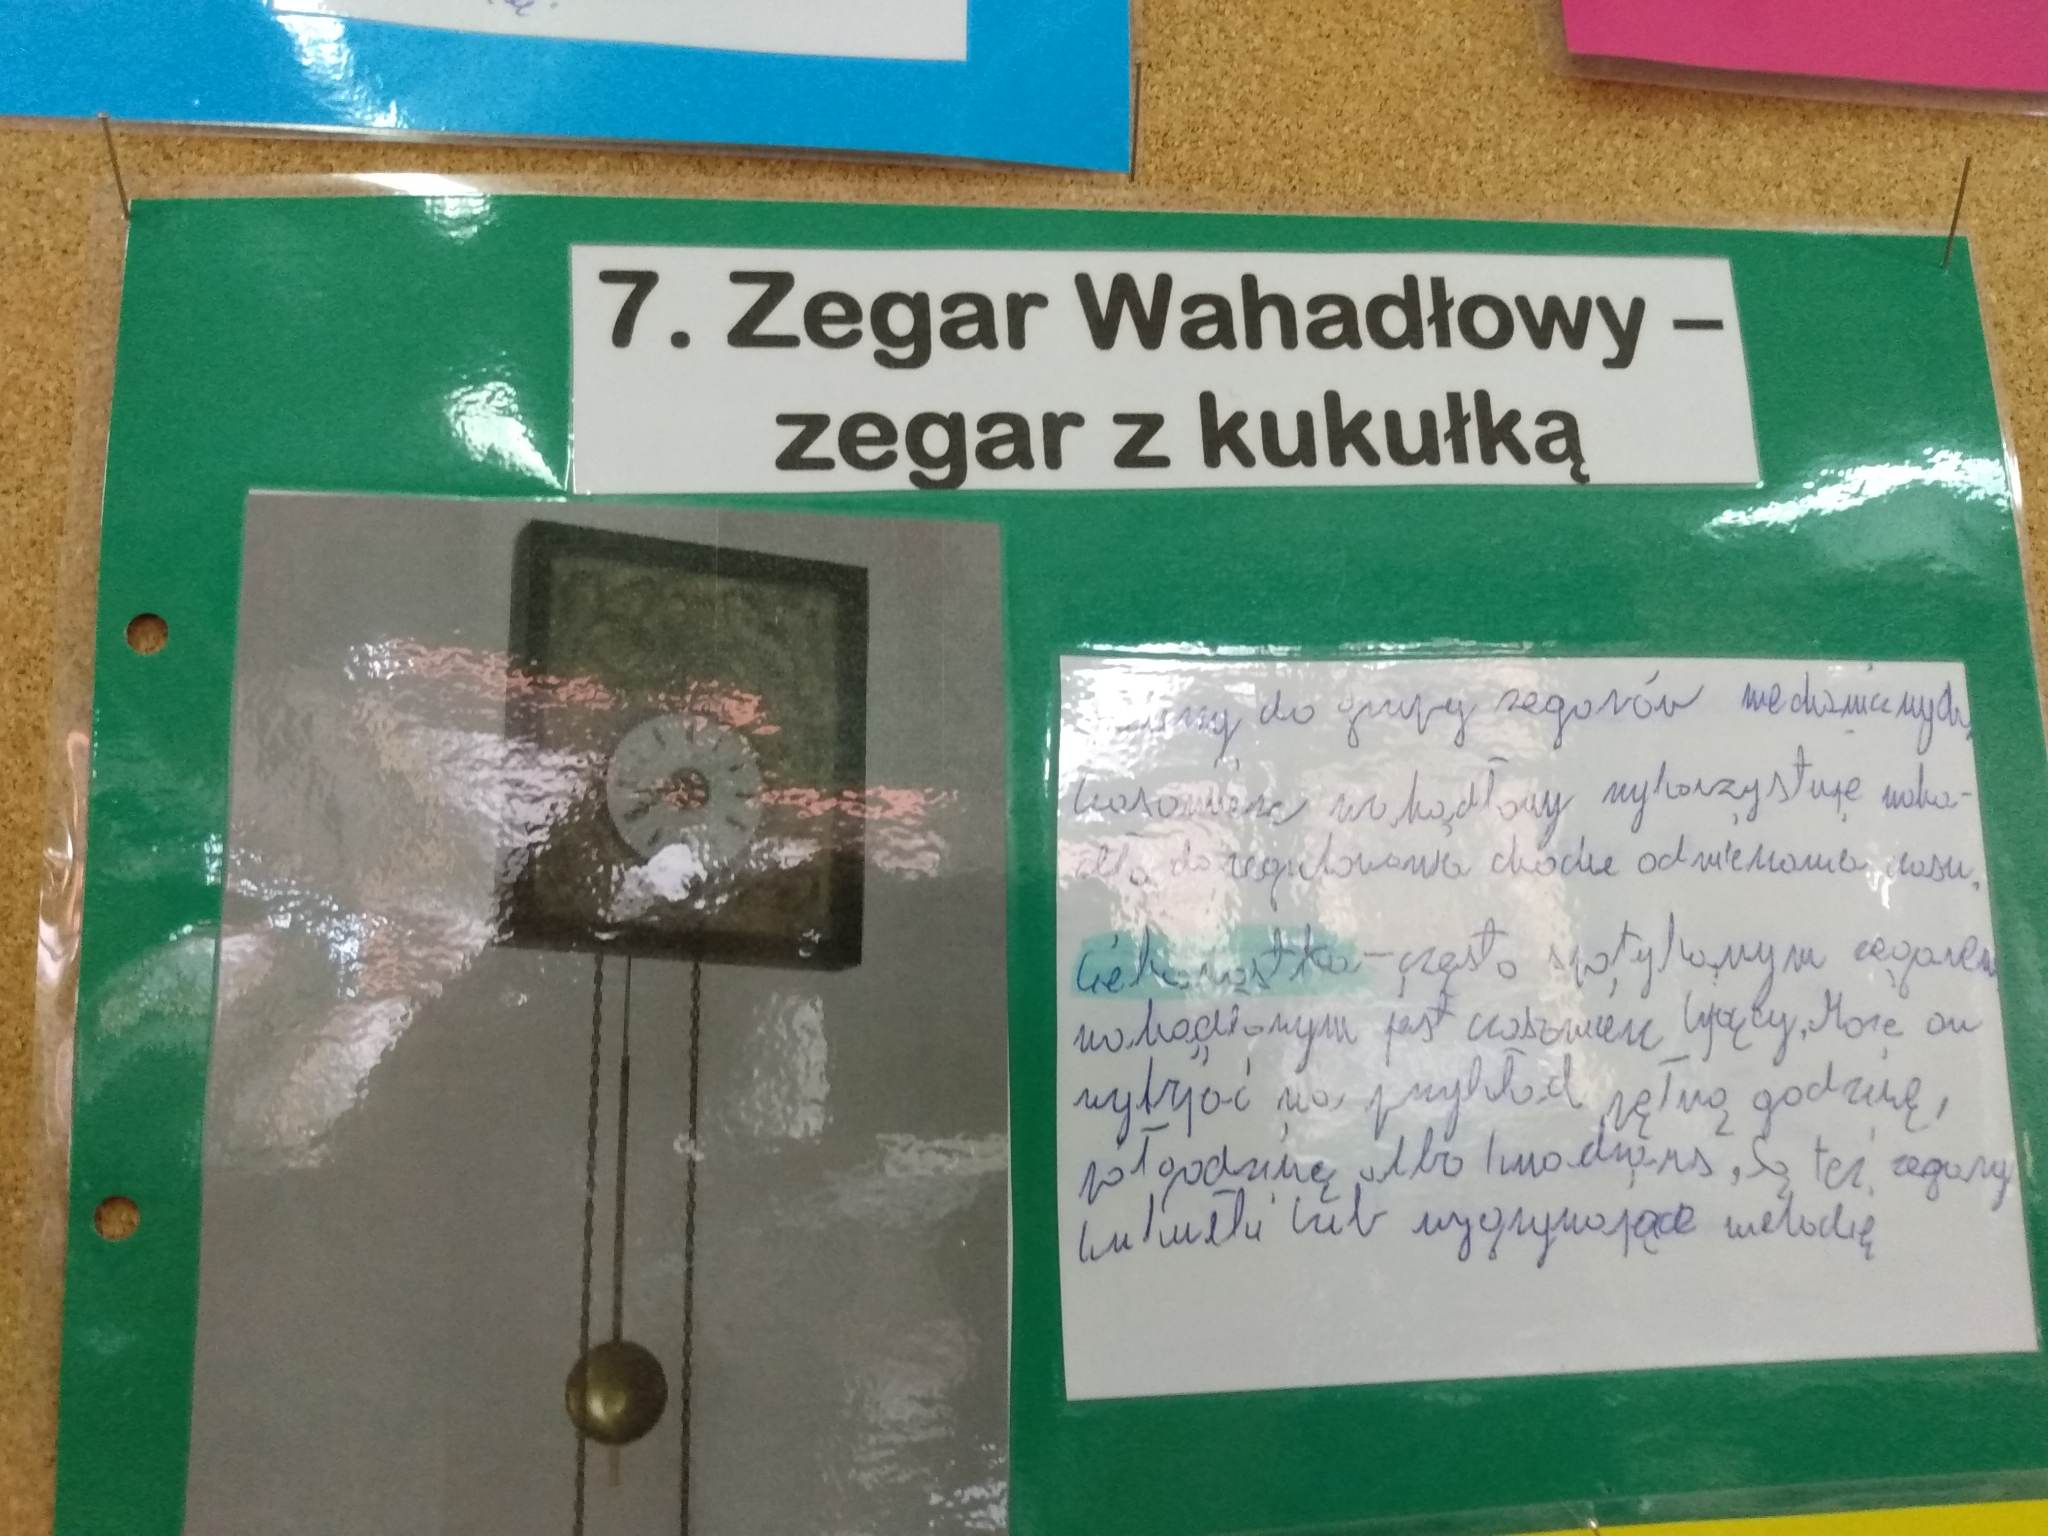 7. Zegar Wahadłowy –
zegar z kukułką
do grupy zegarów mechanicznych
czasomierz wahadłowy wykorzystuje waha-
dło do regulowania chodu odmierzania czasu.
Ciekawostka – często spotykanym zegarem
wahadłowym jest czasomierz bijący. Może on
wybijać na przykład pełną godzinę,
pół godzinę albo kwadrans, Są też zegary
kukułki lub wygrywające melodię